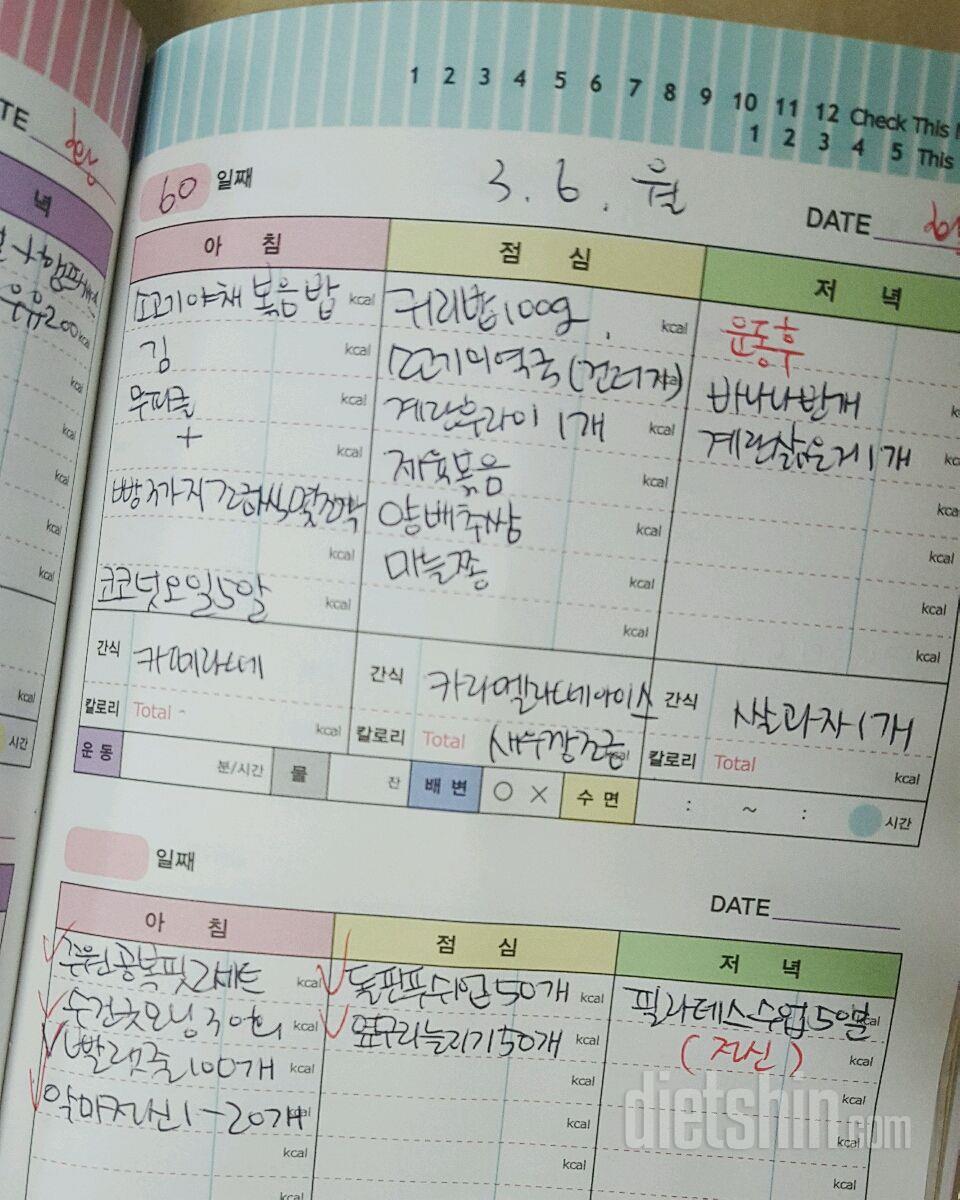 1 2 3 4 5 6 7 8 9 10 11 12 Check This
1 2 3 4 5 This
60 일째
3. 6. 월
DATE
아 침
점 심
저 녁
소고기야채볶음밥 kcal
김 kcal
무피클 kcal
+ kcal
빵3가지 몇조각
kcal
코코넛오일5알 kcal
귀리밥100g kcal
소고기미역국(건더기)
계란후라이 1개 kcal
제육볶음 kcal
양배추쌈
마늘쫑 kcal
kcal
운동후
바나나반개
계란삶은거1개
kcal
kcal
kcal
kcal
간식 카페라떼
칼로리 Total kcal
간식 카라멜라떼아이스
칼로리 Total 새우깡조금
간식 쌀과자1개
칼로리 Total kcal
운동 분/시간 물 잔 배변 ○ × 수면 : ~ : 시간
일째
DATE
아 침
점 심
저 녁
주원공복핏2세트 kcal
수건굿모닝30회 kcal
빨랫줄100개 kcal
악마전신1-20개
kcal
kcal
돌판푸쉬업50개 kcal
옆구리늘리기50개 kcal
kcal
kcal
kcal
kcal
필라테스수업50분
(전신) kcal
kcal
kcal
kcal
kcal
dietshin.com
녁
우유200
kcal
kcal
kcal
kcal
kcal
kcal
kcal
시간